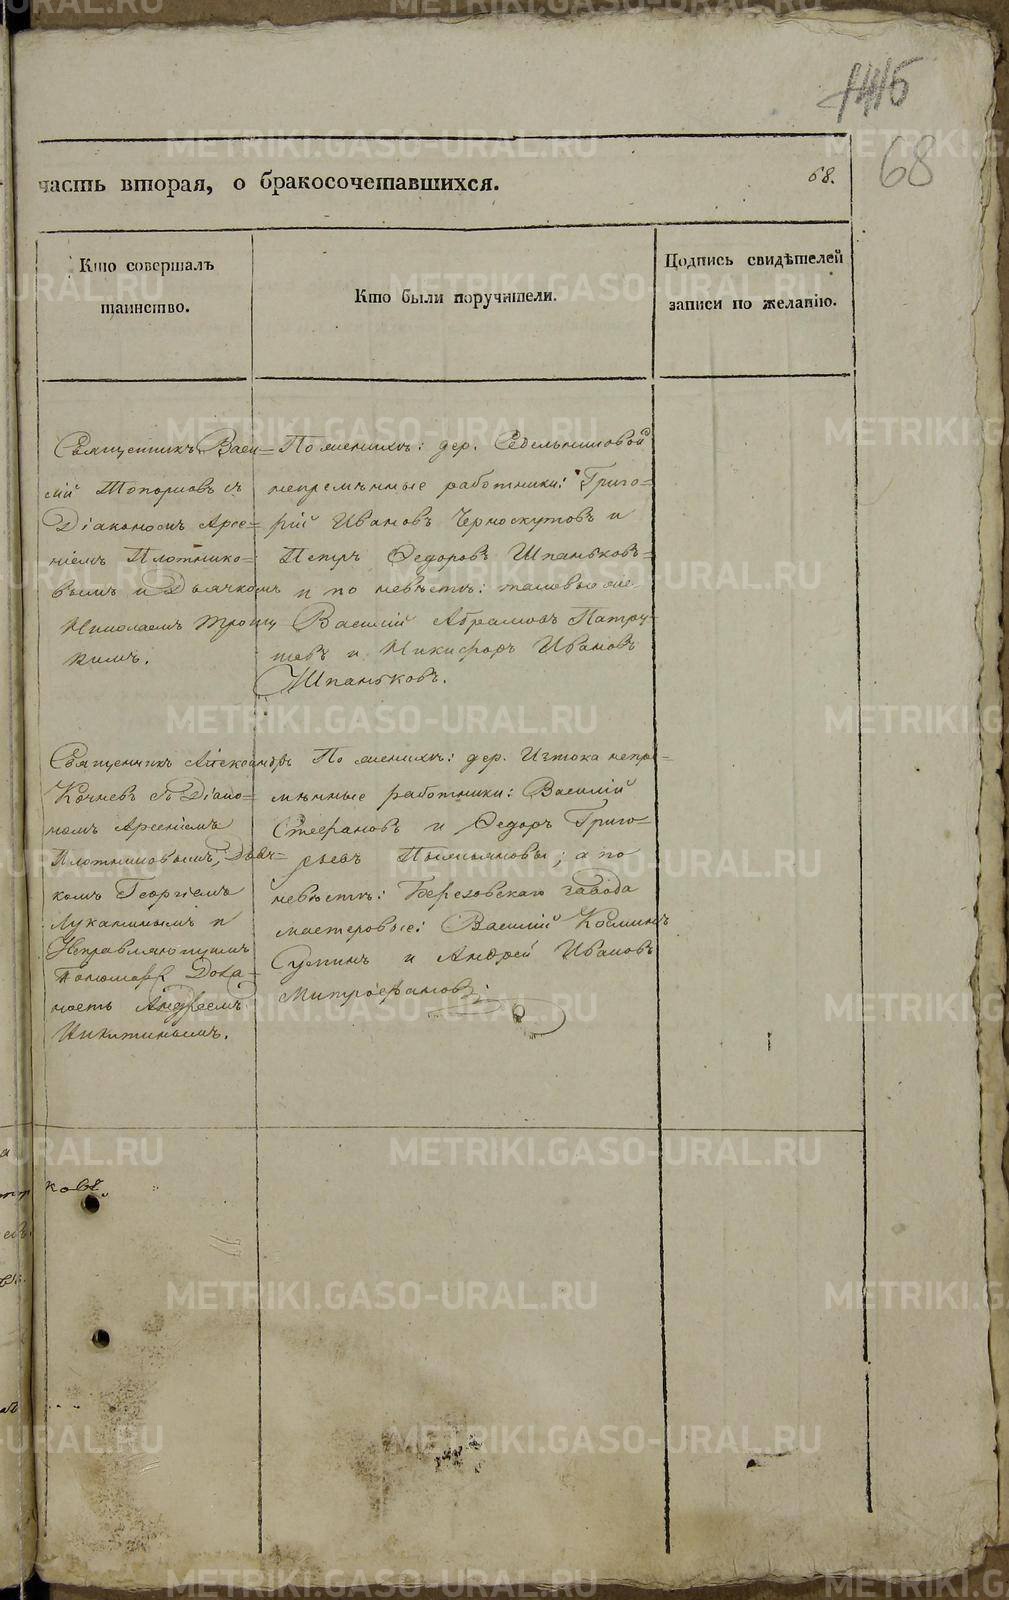 68
68.
часть вторая, о бракосочетавшихся.
Кто совершалъ
таинство.
Кто были поручители.
Подпись свидѣтелей
записи по желанію.
Священникъ Васи=
лій Топорковъ съ
Діакономъ Арсе=
ніемъ Плотнико=
вымъ и Дьячкомъ
Николаемъ
кимъ.
По женихѣ: дер. Седельниковой
непремѣнные работники: Григо=
рій Ивановъ Черноскутовъ и
Петръ Федоровъ Шпаньковъ=
и по невѣстѣ: таковые же
Василій Абрамовъ Патру=
шевъ и Никифоръ Ивановъ
Шпаньковъ.
Священникъ Александръ
Кочневъ съ Діако=
номъ Арсеніемъ
Плотниковымъ, Дьяч=
комъ Георгіемъ
Лукинымъ и
Исправляющимъ
Должность Андреемъ
Никитинымъ.
По женихѣ: дер. Истока непре=
мѣнные работники: Василій
Стефановъ и Федоръ Григо=
рьевъ; а по
невѣстѣ: Березовскаго завода
мастеровые: Василій Козминъ
и Андрей Ивановъ
Митрофановъ.
ковъ.
METRIKI.GASO-URAL.RU